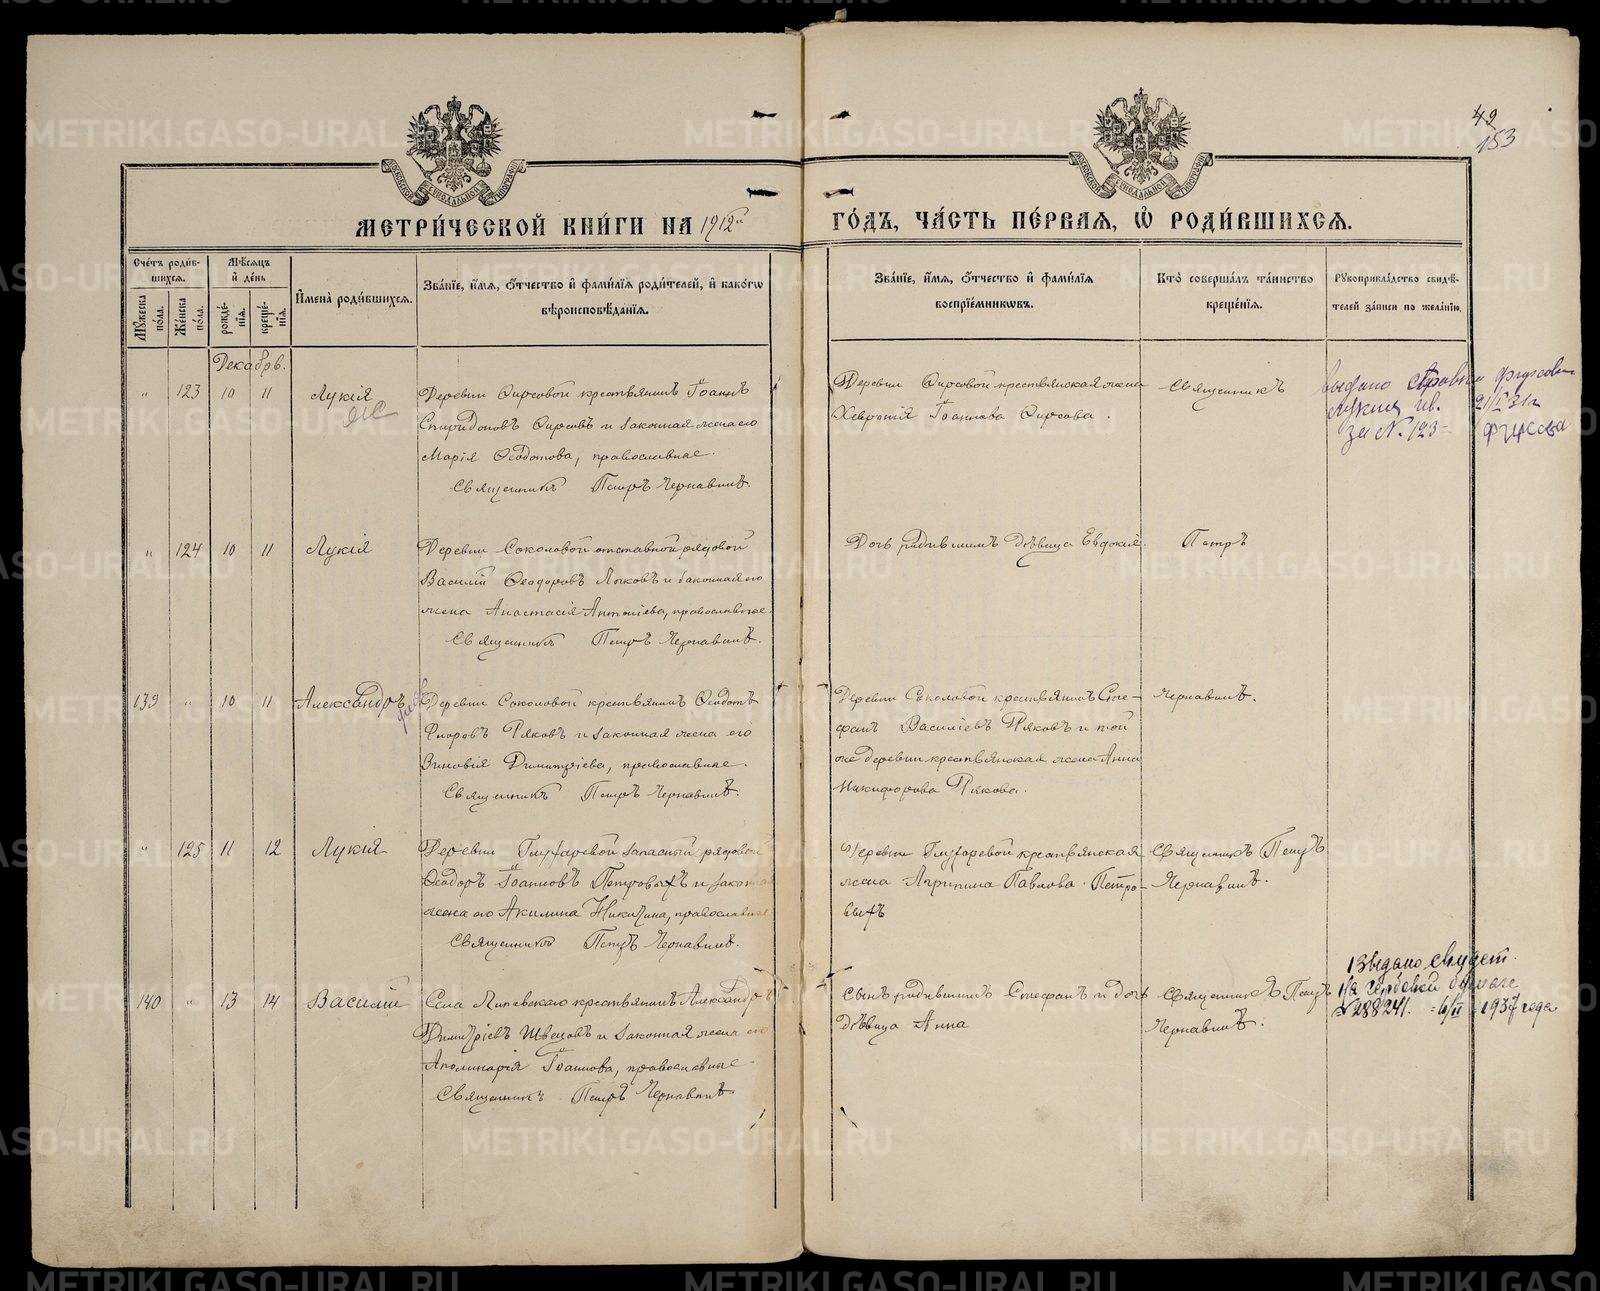 49
153
МЕТРИ́ЧЕСКОЙ КНИ́ГИ НА 1912й ГО́ДЪ, ЧА́СТЬ ПЕ́РВАЯ, Ѡ҆ РОДИ́ВШИХСѦ.
Сче́тъ роди́в-
шихсѧ.
Мꙋжеска по́ла.
Же́нска по́ла.
Мѣ́сѧцъ
и҆ де́нь
рожде́-
нїѧ.
креще́-
нїѧ.
И҆мена̀ роди́вшихсѧ.
Зва́нїе, и҆́мѧ, ѻ҆́тчество и҆ фами́лїѧ роди́телей, и҆ како́гѡ
вѣроисповѣ́данїѧ.
Зва́нїе, и҆́мѧ, ѻ҆́тчество и҆ фами́лїѧ
воспрїе́мникѡвъ.
Кто̀ соверша́лъ та́инство
креще́нїѧ.
Рꙋкоприкла́дство свидѣ́-
телей за́писи по жела́нїю.
Декабрь.
" 123 10 11 Лукія
Деревни Фирсовой крестьянинъ Іоаннъ
Спиридоновъ Фирсовъ и законная жена его
Марія Ѳеодотова, православные.
Священникъ Петръ Чернавинъ.
Деревни Фирсовой крестьянская жена
Хеврония Іоаннова Фирсова.
Священникъ
выдано
Лукия Ив. 21/I 31г
за №. 123-
" 124 10 11 Лукія
Деревни Соколовой отставной рядовой
Василій Ѳеодоровъ и законная его
жена Анастасія Антоніева, православные.
Священникъ Петръ Чернавинъ.
Дочь родившимъ дѣвица Евдокія.
Петръ
139 " 10 11 Александръ
Деревни Соколовой крестьянинъ Ѳеодотъ
Флоровъ Ряковъ и законная жена его
Зиновія Димитріева, православные.
Священникъ Петръ Чернавинъ.
Деревни Соколовой крестьянинъ Сте-
фанъ Василіевъ Ряковъ и той
же деревни крестьянская жена Анна
Никифорова Рякова.
Чернавинъ.
" 125 11 12 Лукія
Деревни Глухаревой запасный рядовой
Ѳеодоръ Іоанновъ Петровыхъ и законная
жена его Акилина Никитина, православные
Священникъ Петръ Чернавинъ.
Деревни Глухаревой крестьянская
жена Агрипина Павлова Петро-
выхъ
Священникъ Петръ
Чернавинъ.
140 " 13 14 Василій
Села Липовскаго крестьянинъ Александръ
Димитріевъ Швецовъ и законная жена его
Аполинарія Іоаннова, православные
Священникъ Петръ Чернавинъ
Сынъ родившимъ Стефанъ и дочь
дѣвица Анна
Священникъ Петръ
Чернавинъ.
Выдано свидет.
На гербовой бумаге
№288241. 6/II 1937 года